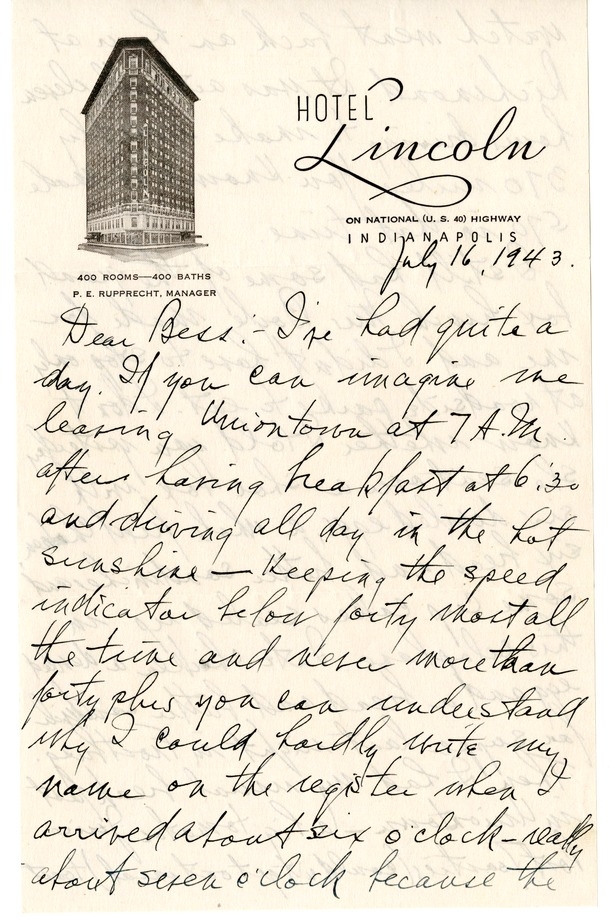 HOTEL
Lincoln
ON NATIONAL (U. S. 40) HIGHWAY
INDIANAPOLIS
July 16, 1943.
400 ROOMS—400 BATHS
P. E. RUPPRECHT, MANAGER
Dear Bess:- I've had quite a
day. If you can imagine me
leaving Uniontown at 7 A.M.
after having breakfast at 6:30
and driving all day in the hot
sunshine — keeping the speed
indicator below forty most all
the time and never more than
forty plus you can understand
why I could hardly write my
name on the register when I
arrived about six o'clock - really
about seven o'clock because the